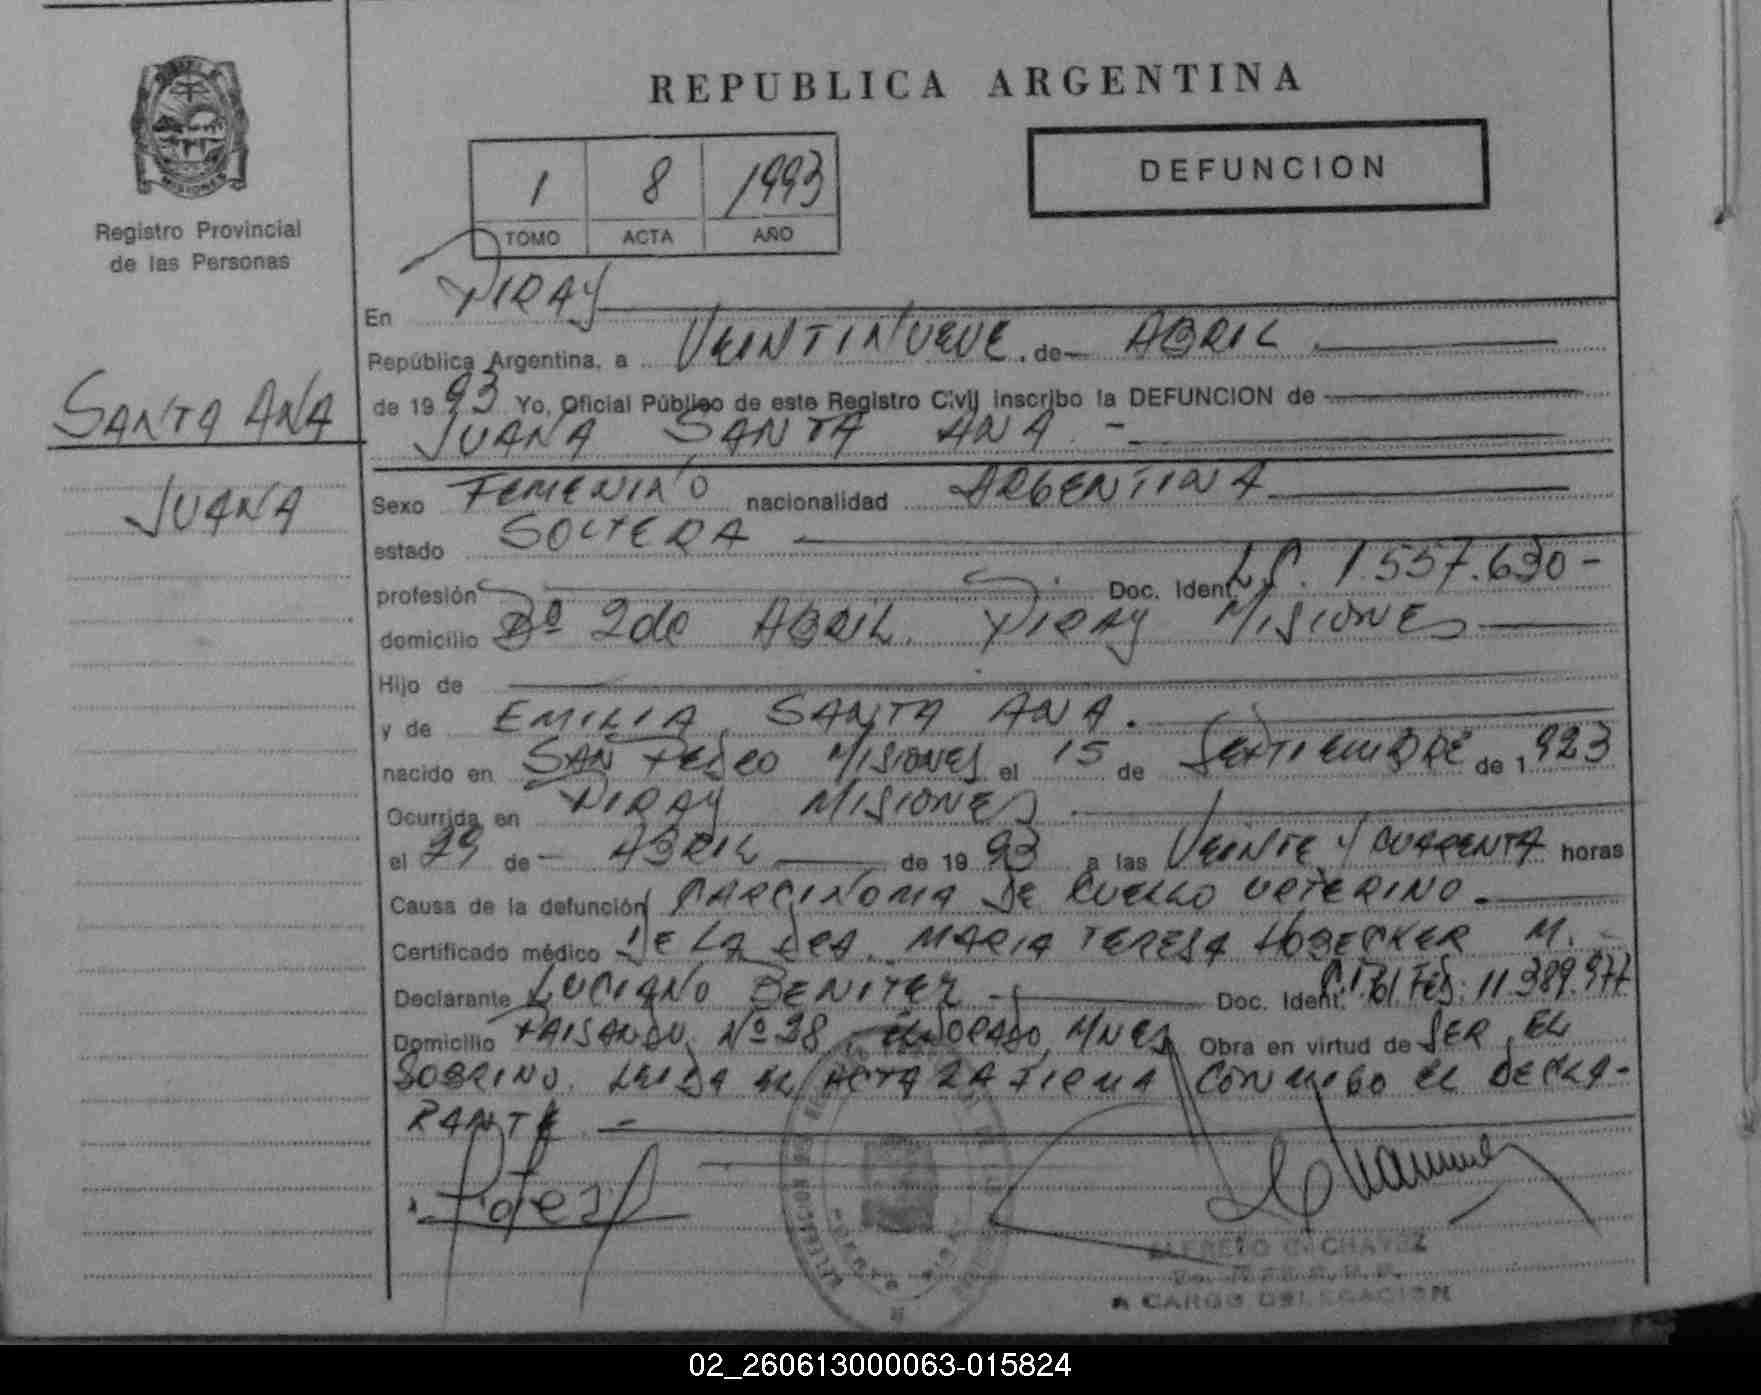 REPUBLICA ARGENTINA
DEFUNCION
1 8 1993
TOMO ACTA AÑO
Registro Provincial
de las Personas
SANTA ANA
JUANA
En PIRAY
República Argentina, a VEINTINUEVE de ABRIL
de 1993 Yo, Oficial Público de este Registro Civil inscribo la DEFUNCION de
JUANA SANTA ANA. -
Sexo FEMENINO nacionalidad ARGENTINA
estado SOLTERA
profesión Doc. Ident. L.C. 1.557.630-
domicilio Bº 2 de ABRIL. PIRAY MISIONES
Hijo de
y de EMILIA SANTA ANA.
nacido en SAN PEDRO MISIONES el 15 de SEPTIEMBRE de 1923
Ocurrida en PIRAY MISIONES
el 29 de ABRIL de 1993 a las VEINTE Y CUARENTA horas
Causa de la defunción CARCINOMA DE CUELLO UTERINO.
Certificado médico DE LA DRA. MARIA TERESA HOBECKER M.
Declarante LUCIANO BENITEZ Doc. Ident. C.I. Fed. 11.389.977
Domicilio PAISANDU Nº 38 ELDORADO, MNES Obra en virtud de SER EL
SOBRINO. LEIDA EL ACTA LA FIRMA CONMIGO EL DECLA-
RANTE. -
ALFREDO CHAVEZ
A CARGO DELEGACION
02_260613000063-015824